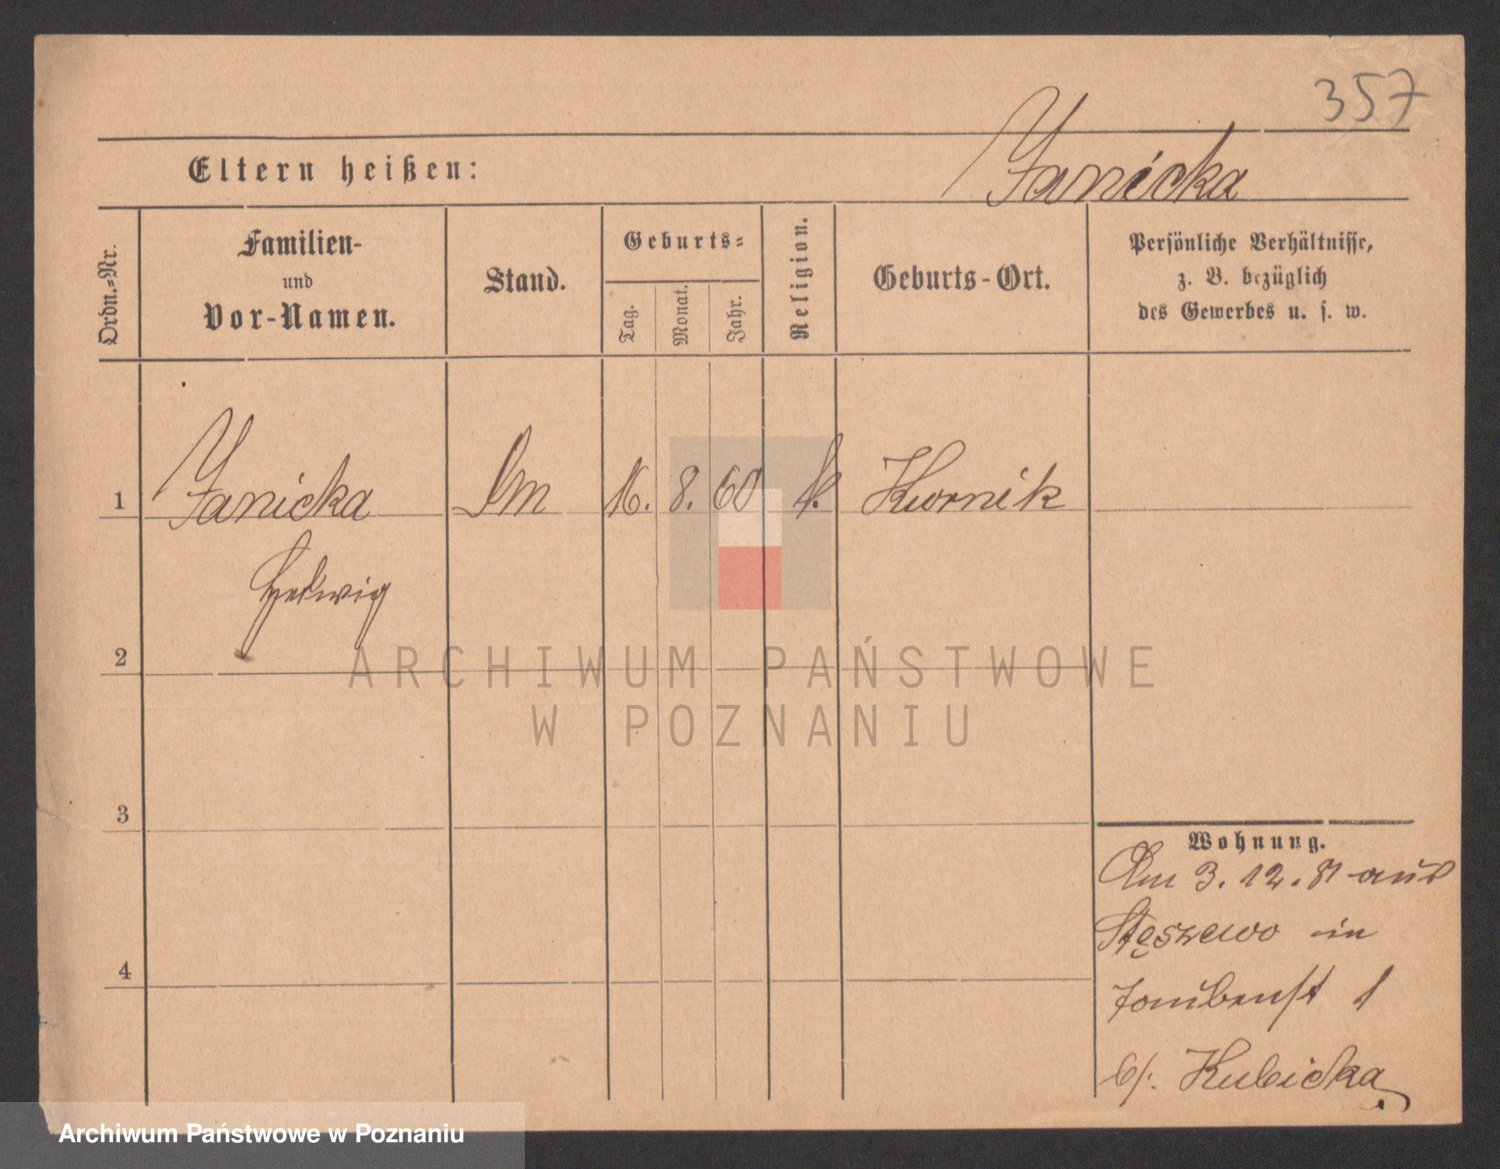 357
Eltern heißen:
Janicka
Ordn.-Nr.
Familien-
und
Vor-Namen.
Stand.
Geburts-
Tag.
Monat.
Jahr.
Religion.
Geburts-Ort.
Persönliche Verhältnisse,
z. B. bezüglich
des Gewerbes u. s. w.
1
Janicka
16. 8. 60
k.
Kurnik
Hedwig
2
ARCHIWUM PAŃSTWOWE
W POZNANIU
3
Wohnung.
Am 3. 12. 81 aus
Stęszewo in
Taubenst 1
b/. Kubicka
4
Archiwum Państwowe w Poznaniu